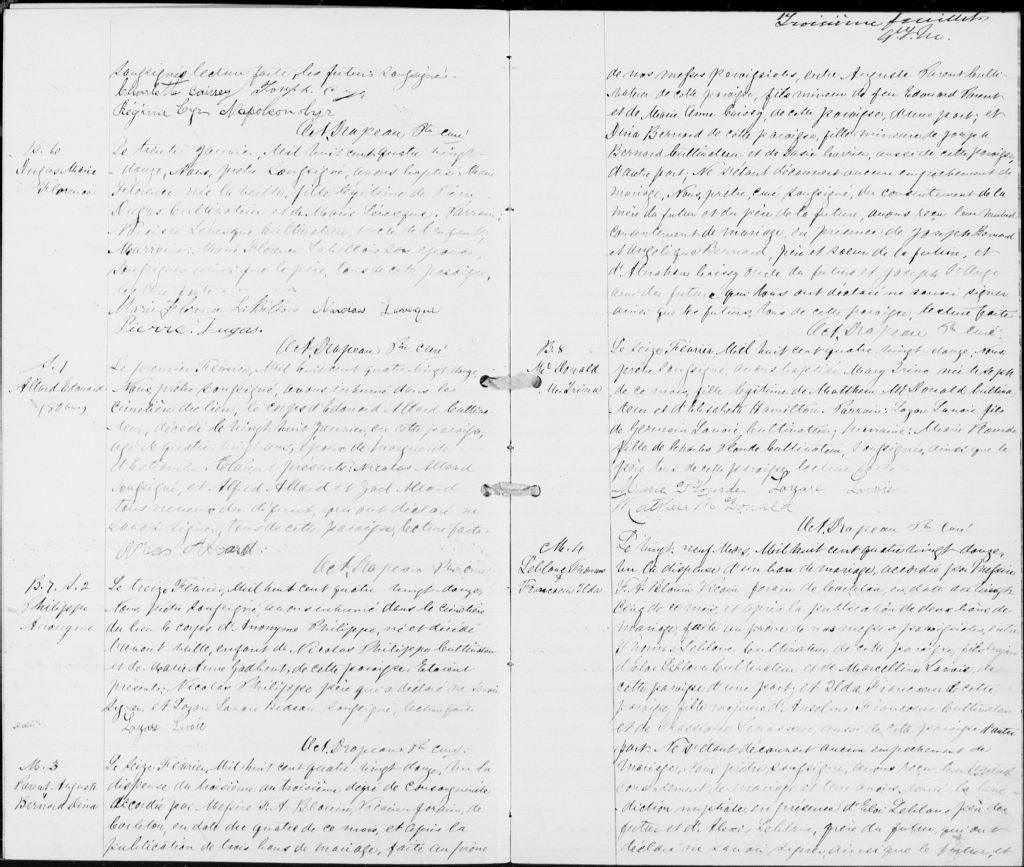 soussignés lecture faite, les futurs soussigné.
Charlotte Caissey Joseph Cyr
Régina Cyr Napoleon Cyr
Act. Drapeau Ptre curé
B. 6
Dugas Marie
Florence
Le trente Janvier, Mil huit cent quatre vingt
douze, Nous, prêtre soussigné, avons baptisé Marie
Florence née la veille, fille légitime de Pierre
Dugas Cultivateur et de Marie Levesque. Parrain:
Narcisse Levesque Cultivateur, oncle de l'enfant,
Marraine: Marie Florence son épouse,
soussignés ainsi que le père, tous de cette paroisse,
lecture faite.
Marie Florence Narcisse Levesque
Pierre Dugas.
Act. Drapeau Ptre curé
S. 1
Allard Edouard
(80 ans)
Le premier Février, Mil huit cent quatre vingt douze
Nous, prêtre soussigné, avons inhumé dans le
cimetière du lieu, le corps d'Edouard Allard Cultiva-
teur, décédé le vingt huit Janvier, en cette paroisse,
agé de quatre vingt ans, époux de Marguerite
Etaient présents: Nicolas Allard
soussigné, et Alfred Allard et Zoel Allard
tous neveux du défunt, qui ont déclaré ne
savoir signer, tous de cette paroisse, lecture faite.
Allard.
Act. Drapeau Ptre curé
B. 7. S. 2
Philippe
Anonyme
Le treize Février, Mil huit cent quatre vingt douze,
Nous, prêtre soussigné avons inhumé dans le cimetière
du lieu le corps d'Anonyme Philippe, né et décédé
l'avant veille, enfant de Nicolas Philippe Cultivateur
et de Marie Anne Godbout, de cette paroisse. Etaient
présents: Nicolas Philippe père qui a déclaré ne savoir
signer et Lazare Lavoie Bedeau soussigné, lecture faite
Lazare Lavoie
Act. Drapeau Ptre curé
M. 3
Parent Auguste
Bernard Dina
Le seize Février, Mil huit cent quatre vingt douze, vu la
dispense du troisième au troisième degré de Consanguinité
accordée par Messire F. A. Blouin, Vicaire forain, de
Carleton, en date du quatre de ce mois, et après la
publication de trois bans de mariage, faite au prône
Troisième feuillet
de nos messes paroissiales, entre Auguste Parent Culti-
vateur de cette paroisse, fils mineur de feu Edouard Parent
et de Marie Anne Caissy, de cette paroisse, d'une part; et
Dina Bernard de cette paroisse, fille mineure de Joseph
Bernard Cultivateur et de Carrier, aussi de cette paroisse,
d'autre part, Ne s'étant découvert aucun empêchement de
mariage, Nous, prêtre, curé soussigné, du consentement de la
mère du futur et du père de la future, avons reçu leur mutuel
consentement de mariage, en présence de Joseph Bernard
et Angélique Bernard, père et soeur de la future, et
d'Abraham Caissy oncle du futur et Joseph St Onge
ami du futur, qui tous ont déclaré ne savoir signer
ainsi que les futurs, tous de cette paroisse, lecture faite
Act. Drapeau Ptre curé
B. 8
McDonald
Mie Irina
Le seize Février Mil huit cent quatre vingt douze, Nous
prêtre soussigné, avons baptisé Mary Irina née le sept
de ce mois, fille légitime de Matthew McDonald Cultiva-
teur et d'Elisabeth Hamilton. Parrain: Lazare Lavoie fils
de Germain Lavoie Cultivateur; Marraine: Marie Plourde
fille de Charles Plourde Cultivateur, soussignés, ainsi que le
père, tous de cette paroisse, lecture faite
Marie Plourde Lazare Lavoie
Mathew McDonald
Act. Drapeau Ptre curé
M. 4
Leblanc Thomas
&
Francoeur Ilda
Le vingt neuf Mars, Mil huit cent quatre vingt douze,
vu la dispense d'un ban de mariage, accordée par Messire
F. A. Blouin Vicaire forain de Carleton, en date du vingt
cinq de ce mois, et après la publication de deux bans de
mariage faite au prône de nos messes paroissiales, entre
Thomas Leblanc Cultivateur de cette paroisse, fils majeur
d'Eloi Leblanc Cultivateur et de Marcelline Lavoie, de
cette paroisse d'une part; et Ilda Francoeur de cette
paroisse, fille majeure d'Anselme Francoeur Cultivateur
et de aussi de cette paroisse d'autre
part. Ne s'étant découvert aucun empêchement de
mariage, Nous prêtre soussigné, avons reçu leur mutuel
consentement de mariage et leur avons donné la béné-
diction nuptiale en présence d'Eloi Leblanc père du
futur et d'Alexis Leblanc, frère du futur, qui ont
déclaré ne savoir signer, ainsi que le futur, et